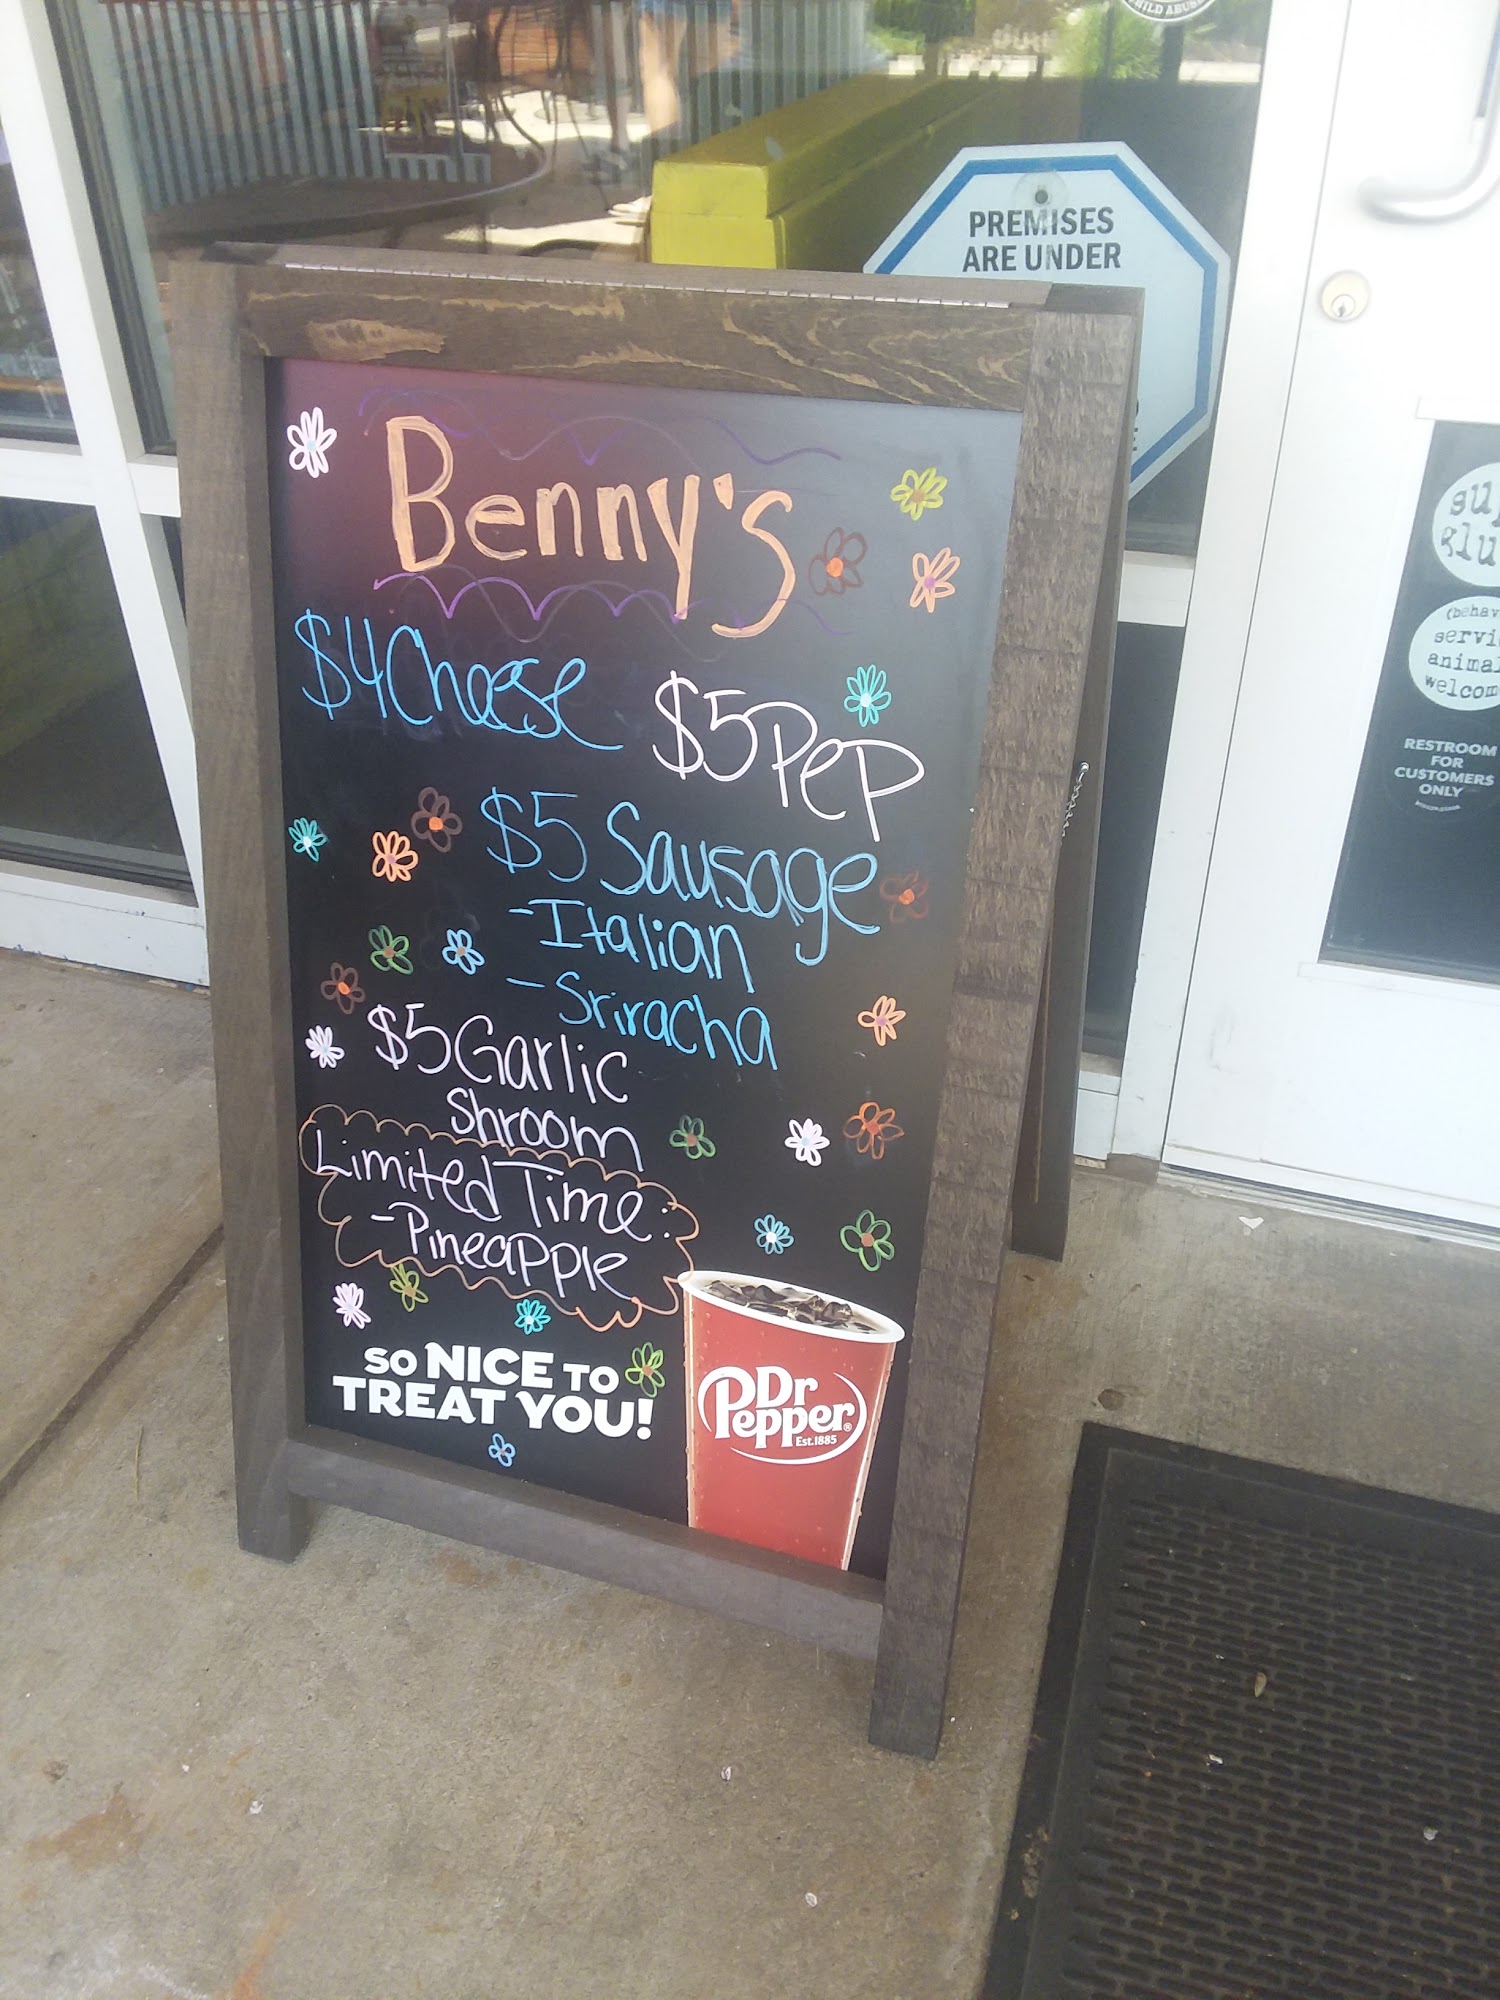 HILD ABUSE
PREMISES
ARE UNDER
Benny's
$4 Cheese
$5 Pep
$5 Sausage
-Italian
-Sriracha
$5 Garlic
Shroom
Limited Time:
-Pineapple
SO NICE TO
TREAT YOU!
Dr
Pepper®
Est.1885
(behav
servi
animal
welcom
RESTROOM
FOR
CUSTOMERS
ONLY